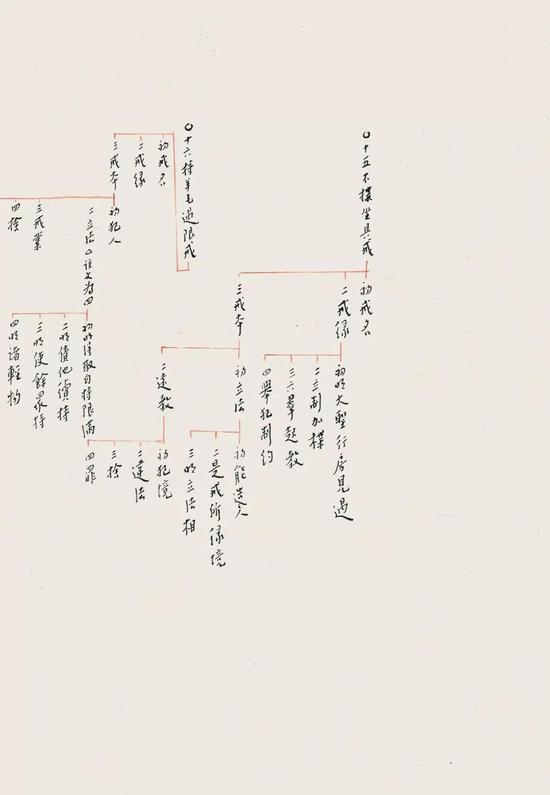 〇十五不揲坐具戒
初戒名
二戒緣
初明大聖行房見過
二立制加揲
三六羣起教
四舉犯制約
三戒本
初立法
初能造人
二是戒所緣境
三明立法相
二違教
初犯境
二違法
三捨
四罪
〇十六持羊毛過限戒
初戒名
二戒緣
三戒本
初犯人
二立法△註文為四
初明須取自持限滿
二明債他續持
三明使餘眾持
四明諸輕物
三戒業
四捨